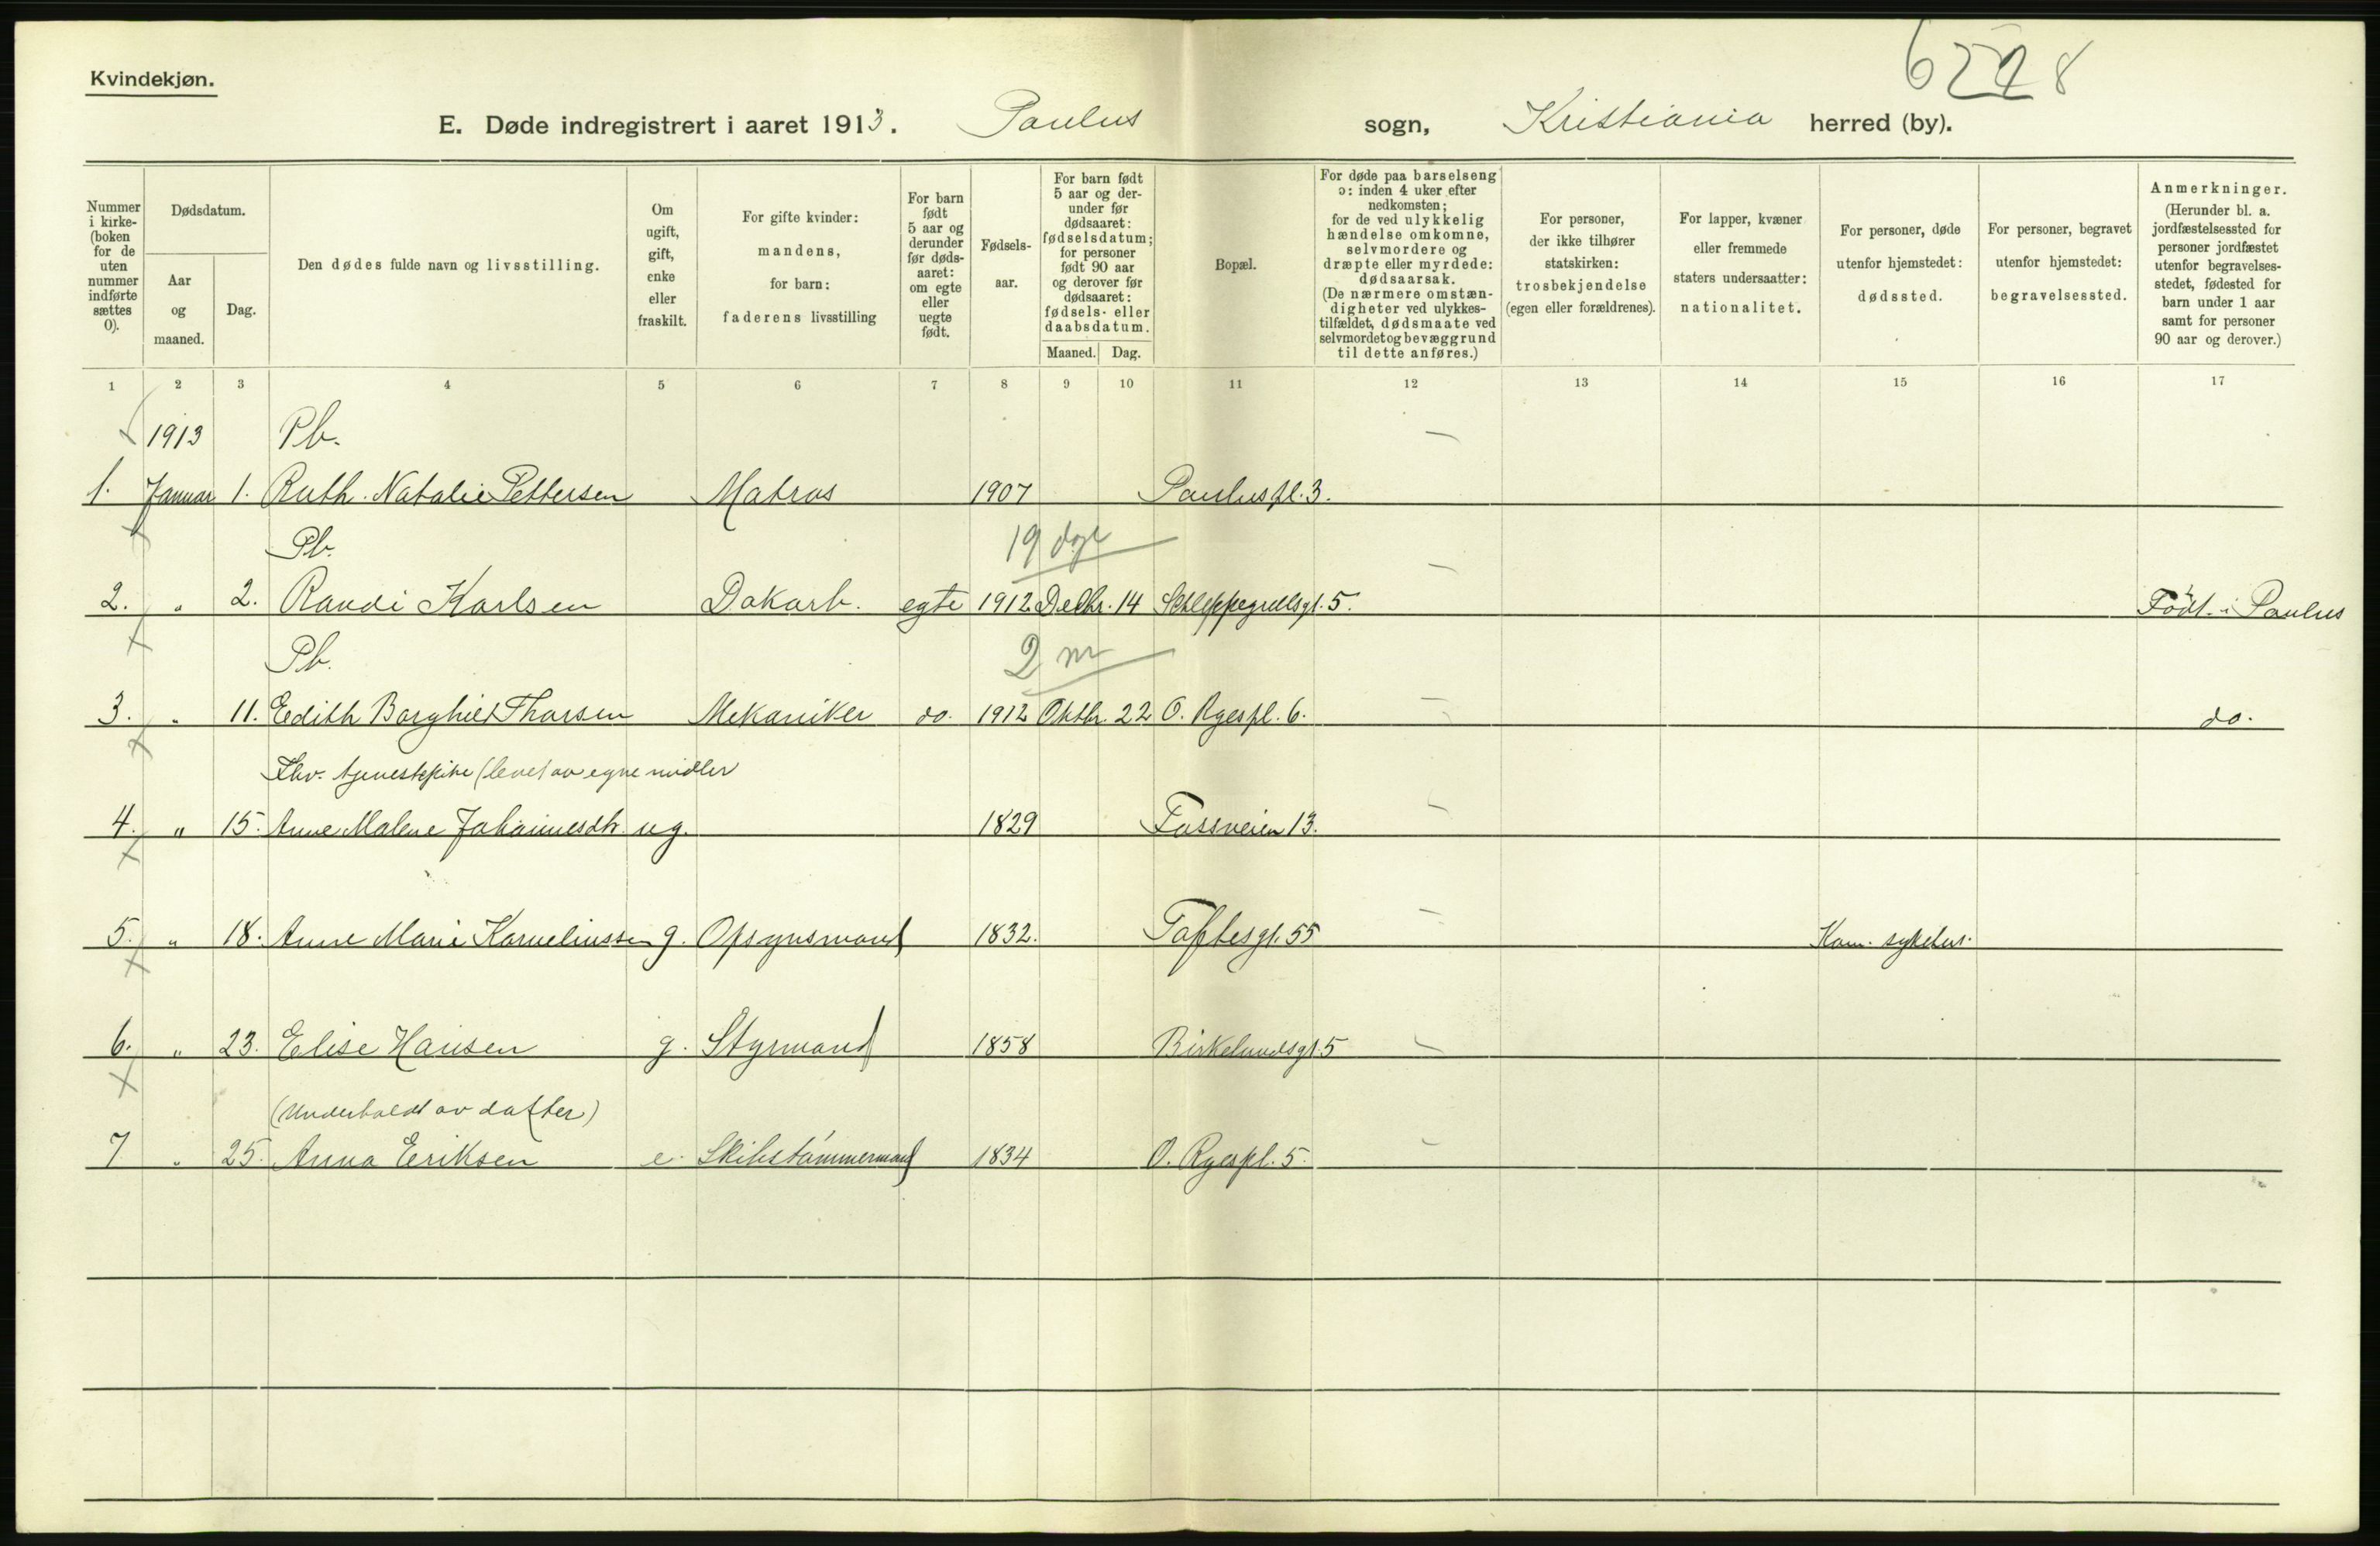 Kvindekjøn.
6278
E. Døde indregistrert i aaret 1913. Paulus sogn, Kristiania herred (by).
Nummer i kirke-(boken for de uten nummer indførte sættes 0).
Dødsdatum.
Aar og maaned.
Dag.
Den dødes fulde navn og livsstilling.
Om ugift, gift, enke eller fraskilt.
For gifte kvinder: mandens, for barn: faderens livsstilling
For barn født 5 aar og derunder før døds-aaret: om egte eller uegte født.
Fødsels-aar.
For barn født 5 aar og der-under før dødsaaret: fødselsdatum; for personer født 90 aar og derover før dødsaaret: fødsels- eller daabsdatum.
Maaned. Dag.
Bopæl.
For døde paa barselseng ɔ: inden 4 uker efter nedkomsten; for de ved ulykkelig hændelse omkomne, selvmordere og dræpte eller myrdede: dødsaarsak. (De nærmere omstæn-digheter ved ulykkes-tilfældet, dødsmaate ved selvmord et og bevæggrund til dette anføres.)
For personer, der ikke tilhører statskirken: trosbekjendelse (egen eller forældrenes).
For lapper, kvæner eller fremmede staters undersaatter: nationalitet.
For personer, døde utenfor hjemstedet: dødssted.
For personer, begravet utenfor hjemstedet: begravelsessted.
Anmerkninger. (Herunder bl. a. jordfæstelsessted for personer jordfæstet utenfor begravelses-stedet, fødested for barn under 1 aar samt for personer 90 aar og derover.)
1 2 3 4 5 6 7 8 9 10 11 12 13 14 15 16 17
1913 Pb.
1. Januar 1. Ruth Natalie Pettersen Matros 1907 Pauluspl. 3.
Pb. 19 dge
2. " 2. Randi Karlsen Dokarb. egte 1912 Decbr. 14 Schleppegrellsgt. 5. Født i Paulus
Pb. 2 m
3. " 11. Edith Borghild Thorsen Mekaniker do. 1912 Oktbr. 22 O. Ryespl. 6. do.
Fhv. tjenestepike (levet av egne midler
4. " 15. Anne Malene Johannesdtr. ug. 1829 Fossveien 13.
5. " 18. Anne Marie Korneliussen g. Opsynsmand 1832. Toftesgt. 55 Kom. sykehus.
6. " 23. Elise Hansen g. Styrmand 1858 Birkelundsgt. 5
(Underholdt av datter)
7 " 25. Anna Eriksen e. Skibstømmermand 1834 O. Ryespl. 5.